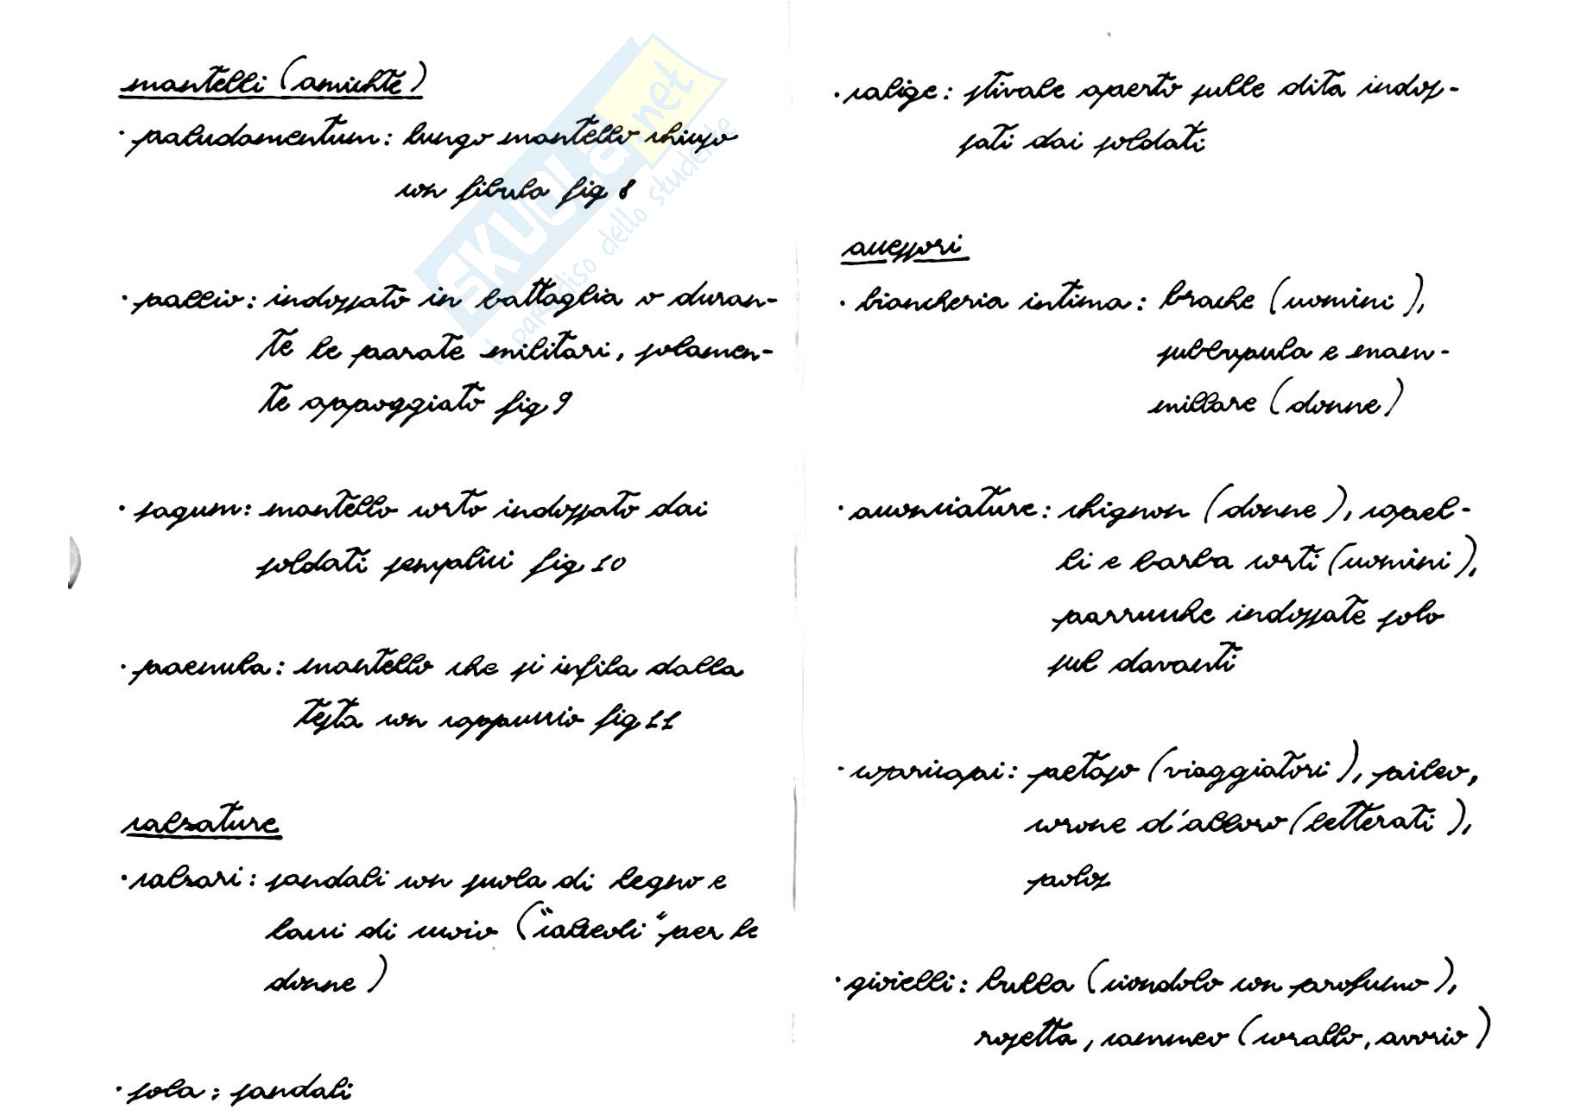 mantelli (amichte)
· paludamentum: lungo mantello chiuso
con fibula fig 8
· pallio: indossato in battaglia o duran-
te le parate militari, solamen-
te appoggiato fig 9
· sagum: mantello corto indossato dai
soldati semplici fig 10
· paenula: mantello che si infila dalla
testa con cappuccio fig 11
calzature
· calzari: sandali con suola di legno e
lacci di cuoio ("calceoli" per le
donne)
· sola: sandali
· calige: stivale aperto sulle dita indos-
sati dai soldati
accessori
· biancheria intima: brache (uomini),
subcupula e mam-
millare (donne)
· acconciature: chignon (donne), capel-
li e barba corti (uomini),
parrucche indossate solo
sul davanti
· copricapi: petaso (viaggiatori), pileo,
corone d'alloro (letterati),
polos
· gioielli: bulla (ciondolo con profumo),
rosetta, cammeo (corallo, avorio)
SKUOLA.net
il paradiso dello studente